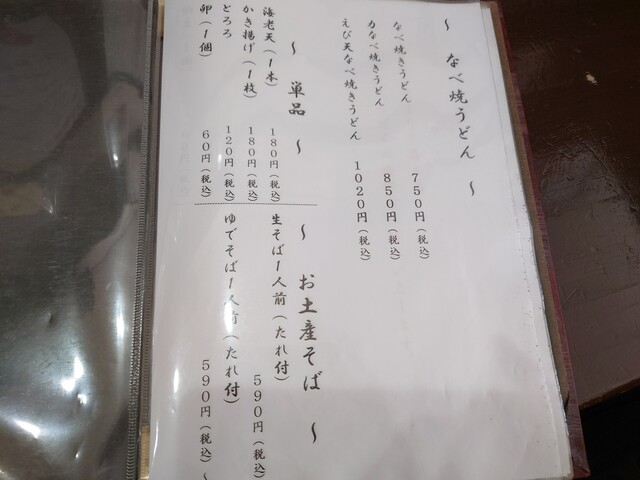 ～ なべ焼うどん ～
なべ焼きうどん 750円(税込)
力なべ焼きうどん 850円(税込)
えび天なべ焼きうどん 1020円(税込)
～ 単品 ～
海老天(1本) 180円(税込)
かき揚げ(1枚) 180円(税込)
とろろ 120円(税込)
卵(1個) 60円(税込)
～ お土産そば ～
生そば1人前(たれ付) 590円(税込)
ゆでそば1人前(たれ付) 590円(税込)